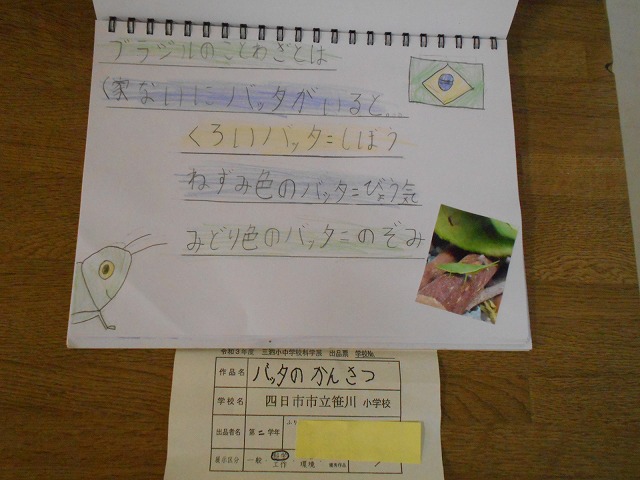 ブラジルのことわざとは
(家ないにバッタがいると…
くろいバッタ=しぼう
ねずみ色のバッタ=びょう気
みどり色のバッタ=のぞみ
令和3年度 三泗小中学校科学展 出品票 学校№
作品名 バッタのかんさつ
学校名 四日市市立笹川 小学校
出品者名 第二学年 ふり
展示区分 一般 工作 環境